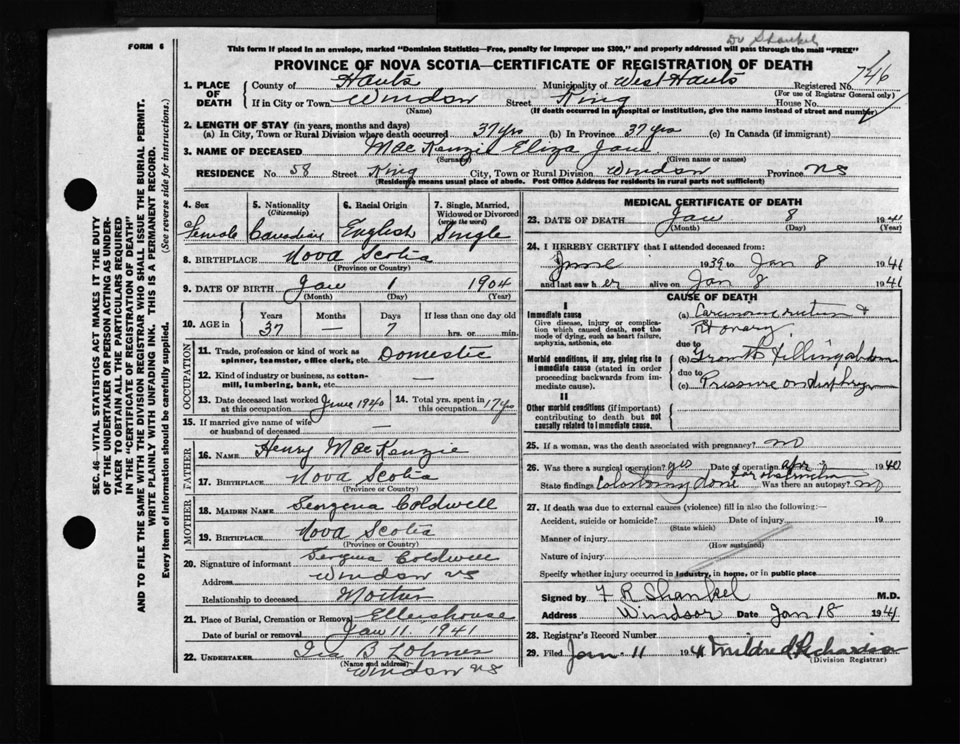 Dr Shankel
FORM 6
This form if placed in an envelope, marked "Dominion Statistics—Free, penalty for improper use $300," and properly addressed will pass through the mail "FREE"
PROVINCE OF NOVA SCOTIA—CERTIFICATE OF REGISTRATION OF DEATH
746
1. PLACE OF DEATH County of Hants Municipality of West Hants Registered No.
(For use of Registrar General only)
If in City or Town Windsor Street King House No.
(Name) (If death occurred in a hospital or institution, give the name instead of street and number)
2. LENGTH OF STAY (in years, months and days)
(a) In City, Town or Rural Division where death occurred 37 yrs (b) In Province 37 yrs (c) In Canada (if immigrant)
3. NAME OF DECEASED MacKenzie Eliza Jane
(Surname) (Given name or names)
RESIDENCE No. 58 Street King City, Town or Rural Division Windsor Province NS
(Residence means usual place of abode. Post Office Address for residents in rural parts not sufficient)
4. Sex Female
5. Nationality (Citizenship) Canadian
6. Racial Origin English
7. Single, Married, Widowed or Divorced (write the word) Single
8. BIRTHPLACE Nova Scotia
(Province or Country)
9. DATE OF BIRTH Jan 1 1904
(Month) (Day) (Year)
10. AGE in Years 37 Months — Days 7 If less than one day old hrs. or min.
OCCUPATION
11. Trade, profession or kind of work as spinner, teamster, office clerk, etc. Domestic
12. Kind of industry or business, as cotton-mill, lumbering, bank, etc. —
13. Date deceased last worked at this occupation June 1940
14. Total yrs. spent in this occupation 17 yrs
15. If married give name of wife or husband of deceased —
FATHER
16. NAME Henry MacKenzie
17. BIRTHPLACE Nova Scotia
(Province or Country)
MOTHER
18. MAIDEN NAME Georgena Coldwell
19. BIRTHPLACE Nova Scotia
(Province or Country)
20. Signature of informant Coldwell
Address Windsor NS
Relationship to deceased Mother
21. Place of Burial, Cremation or Removal Ellershouse
Date of burial or removal Jan 11, 1941
22. UNDERTAKER Ira B Lohnes
(Name and address)
Windsor NS
MEDICAL CERTIFICATE OF DEATH
23. DATE OF DEATH Jan 8 1941
(Month) (Day) (Year)
24. I HEREBY CERTIFY that I attended deceased from:
June 1939 to Jan 8 1941
and last saw her alive on Jan 8 1941
CAUSE OF DEATH
I
Immediate cause
Give disease, injury or complication which caused death, not the mode of dying, such as heart failure, asphyxia, asthenia, etc.
(a) Carcinoma &
Morbid conditions, if any, giving rise to immediate cause (stated in order proceeding backwards from immediate cause).
(b) Growth filling abdomen
(c) Pressure on
II
Other morbid conditions (if important) contributing to death but not causally related to immediate cause.
25. If a woman, was the death associated with pregnancy? no
26. Was there a surgical operation? yes Date of operation Apr 1940
State findings Colostomy done for obstruction Was there an autopsy? no
27. If death was due to external causes (violence) fill in also the following:—
Accident, suicide or homicide? Date of injury 19
(State which)
Manner of injury
(How sustained)
Nature of injury
Specify whether injury occurred in industry, in home, or in public place
Signed by F R Shankel M.D.
Address Windsor Date Jan 18 1941
28. Registrar's Record Number
29. Filed Jan 11 1941 Mildred Richardson
(Division Registrar)
SEC. 46—VITAL STATISTICS ACT MAKES IT THE DUTY
OF THE UNDERTAKER OR PERSON ACTING AS UNDERTAKER
TO OBTAIN ALL THE PARTICULARS REQUIRED
IN THE "CERTIFICATE OF REGISTRATION OF DEATH"
AND TO FILE THE SAME WITH THE DIVISION REGISTRAR WHO SHALL ISSUE THE BURIAL PERMIT.
WRITE PLAINLY WITH UNFADING INK. THIS IS A PERMANENT RECORD.
Every item of information should be carefully supplied. (See reverse side for instructions.)